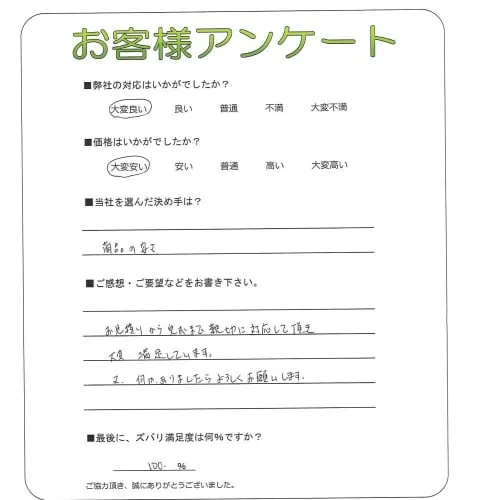 お客様アンケート
■弊社の対応はいかがでしたか？
大変良い 良い 普通 不満 大変不満
■価格はいかがでしたか？
大変安い 安い 普通 高い 大変高い
■当社を選んだ決め手は？
商品の安さ
■ご感想・ご要望などをお書き下さい。
お見積りから完成まで親切に対応して頂き
大変 満足しています。
又、何かありましたらよろしくお願いします。
■最後に、ズバリ満足度は何％ですか？
100. %
ご協力頂き、誠にありがとうございました。